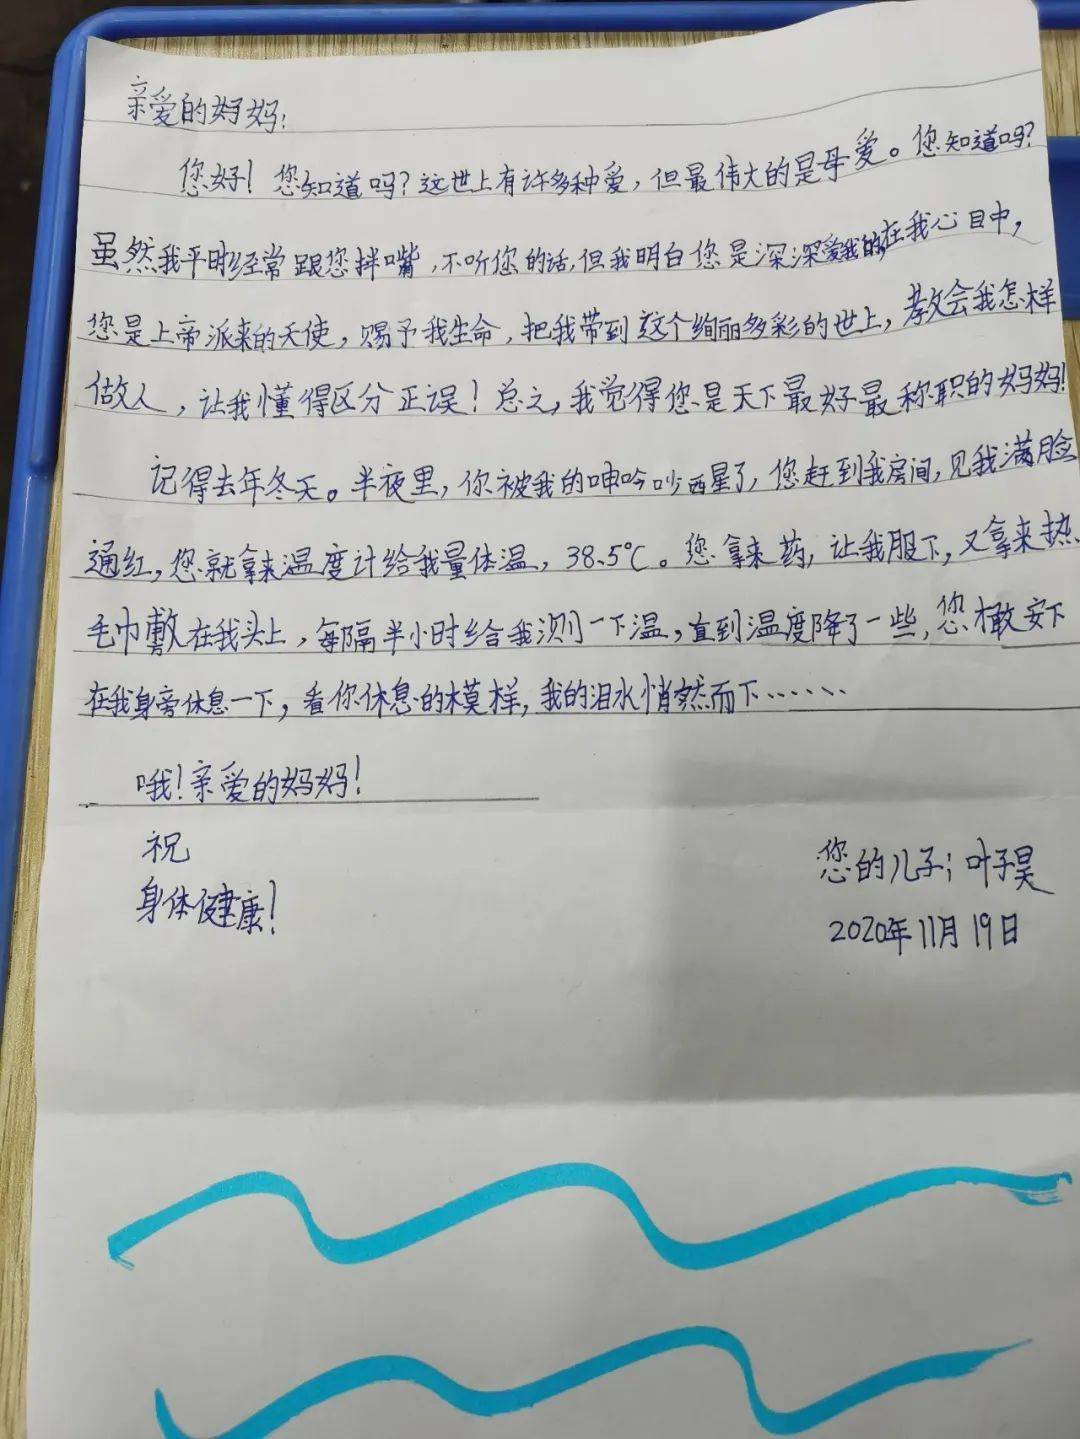 亲爱的妈妈:
您好!您知道吗?这世上有许多种爱,但最伟大的是母爱。您知道吗?
虽然我平时经常跟您拌嘴,不听您的话,但我明白您是深深爱我的,在我心目中,
您是上帝派来的天使,赐予我生命,把我带到这个绚丽多彩的世上,教会我怎样
做人,让我懂得区分正误!总之,我觉得您是天下最好最称职的妈妈!
记得去年冬天。半夜里,你被我的呻吟吵酉星了,您赶到我房间,见我满脸
通红,您就拿来温度计给我量体温,38.5℃。您拿来药,让我服下,又拿来热
毛巾敷在我头上,每隔半小时给我测一下温,直到温度降了一些,您才敢安下
在我身旁休息一下,看你休息的模样,我的泪水悄然而下……
哦!亲爱的妈妈!
祝
身体健康!
您的儿子:叶子昊
2020年11月19日